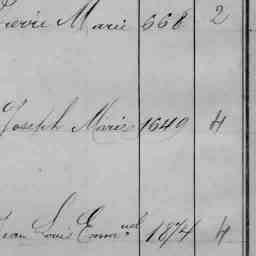 Pierre Marie 668 2
Joseph Marie 1649 4
Jean Louis Emm.uel 1874 4